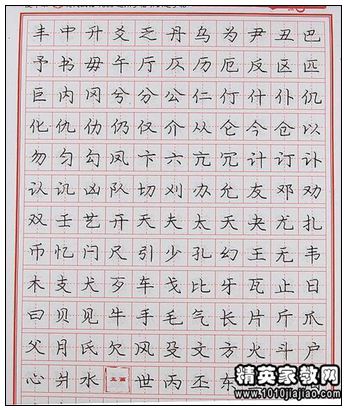 丰中升爻乏丹乌为尹丑巴
予书毋午厅仄历厄反区匹
巨内冈兮分公仁仃什仆仉
化仇仂仍仅介从仑今仓以
勿匀勾凤卞六亢冗计订讣
认讥凶队切刈办允友邓劝
双壬艺开天夫太夭夬尤扎
币忆闩尺引少孔幻王无韦
木支犬歹车戈比牙瓦止日
曰贝见牛手毛气长片斤爪
父月氏欠风殳文方火斗户
心爿水五画世丙丕东
精英家教网
www.1010jiajiao.com